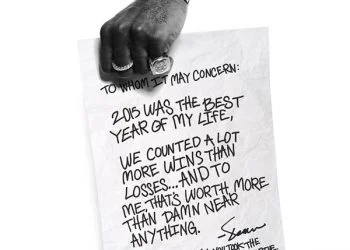 TO WHOM IT MAY CONCERN:
2015 WAS THE BEST
YEAR OF MY LIFE,
WE COUNTED A LOT
MORE WINS THAN
LOSSES...AND TO
ME, THAT'S WORTH MORE
THAN DAMN NEAR
ANYTHING.
Sean
TOOK THE